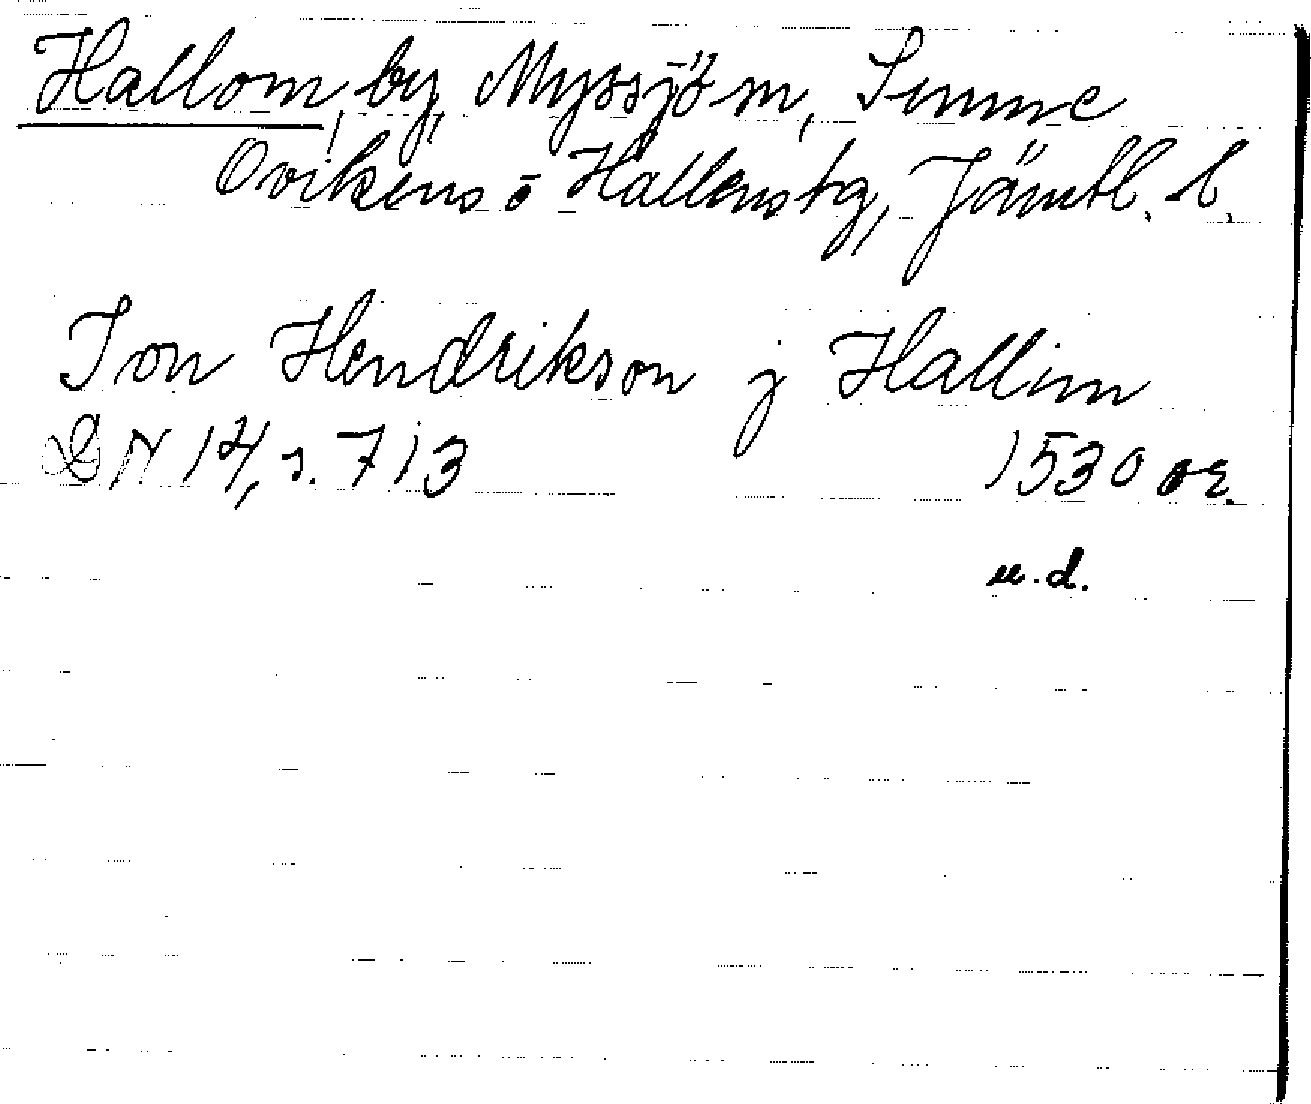 Hallom, by, Myssjö sn, Sunne
Ovikens o Hallens tg, Jämtl. l.
Jon Hendrikson j Hallim
DN 14, s. 713 1530 or.
u.d.